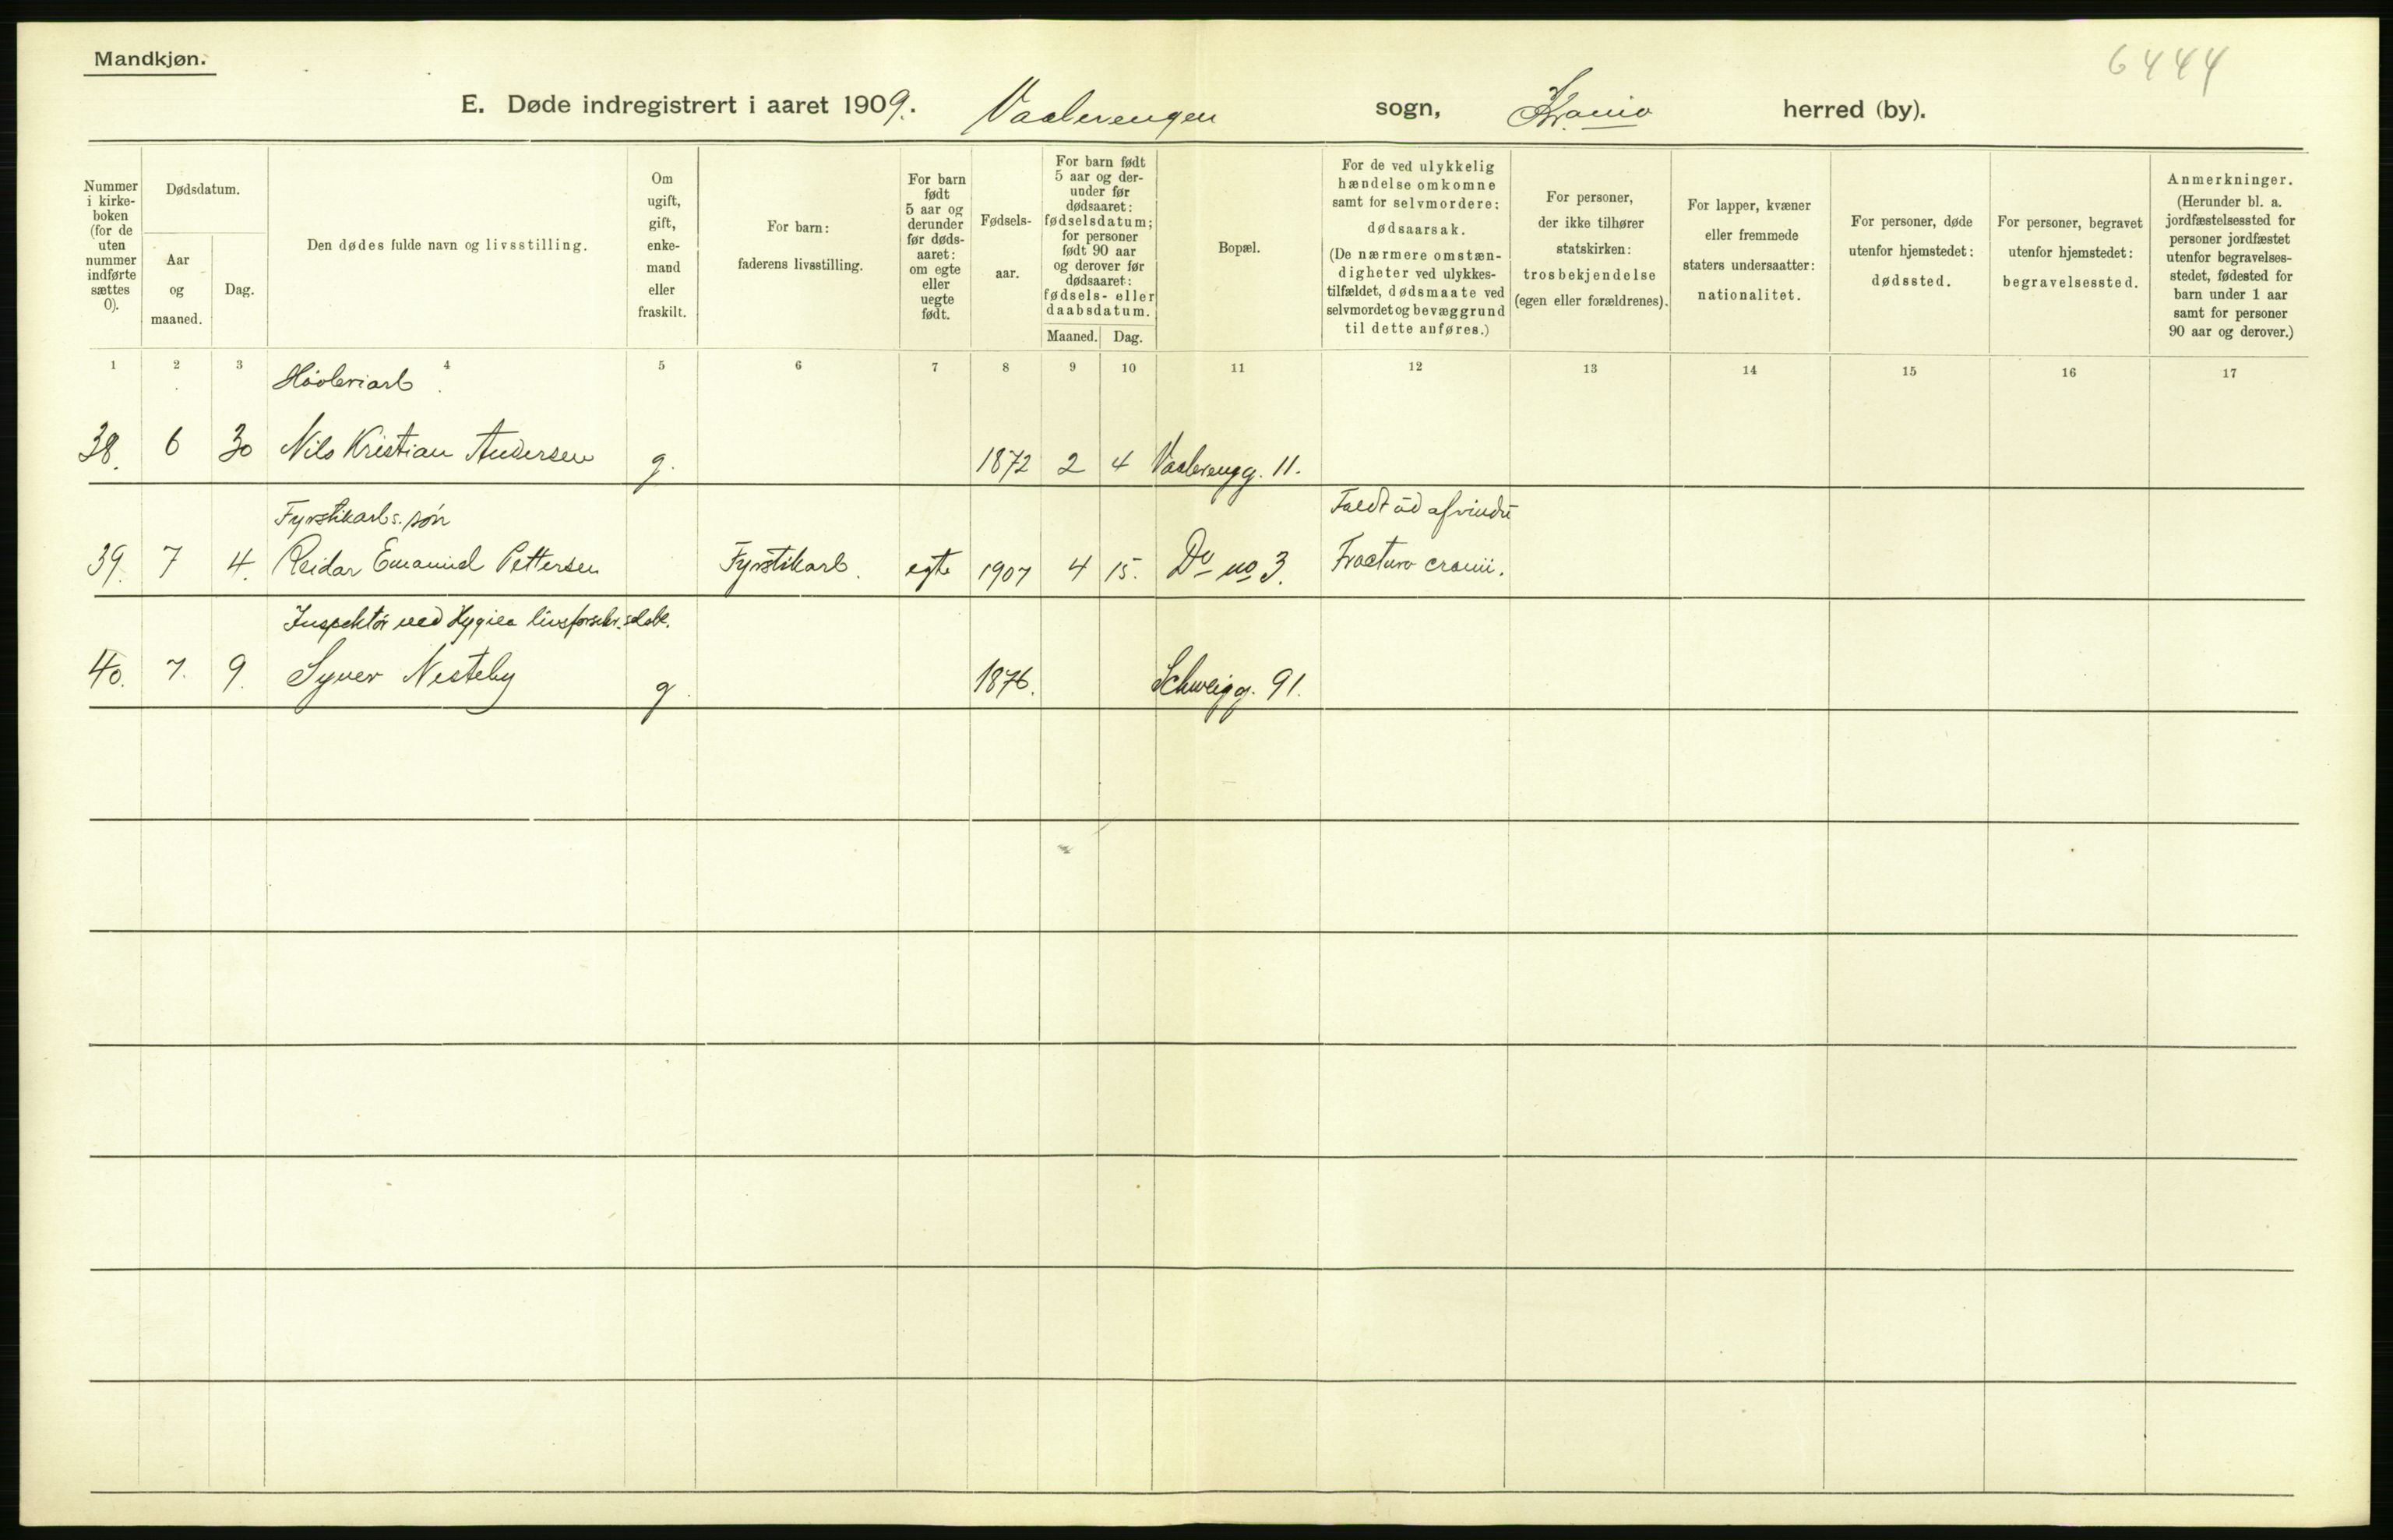 Mandkjøn.
6444
E. Døde indregistrert i aaret 1909. Vaalerengen sogn, Kr.ania herred (by).
Nummer i kirke-boken (for de uten nummer indførte sættes 0).
Dødsdatum.
Aar og maaned.
Dag.
Den dødes fulde navn og livsstilling.
Om ugift, gift, enke-mand eller fraskilt.
For barn: faderens livsstilling.
For barn født 5 aar og derunder før døds-aaret: om egte eller uegte født.
Fødsels-aar.
For barn født 5 aar og der-under før dødsaaret: fødselsdatum; for personer født 90 aar og derover før dødsaaret: fødsels- eller daabsdatum.
Maaned. Dag.
Bopæl.
For de ved ulykkelig hændelse omkomne samt for selvmordere: dødsaarsak. (De nærmere omstæn-digheter ved ulykkes-tilfældet, dødsmaate ved selvmordet og bevæggrund til dette anføres.)
For personer, der ikke tilhører statskirken: trosbekjendelse (egen eller forældrenes).
For lapper, kvæner eller fremmede staters undersaatter: nationalitet.
For personer, døde utenfor hjemstedet: dødssted.
For personer, begravet utenfor hjemstedet: begravelsessted.
Anmerkninger. (Herunder bl. a. jordfæstelsessted for personer jordfæstet utenfor begravelses-stedet, fødested for barn under 1 aar samt for personer 90 aar og derover.)
1 2 3 4 5 6 7 8 9 10 11 12 13 14 15 16 17
Høvleriarb.
38. 6 30 Nils Kristian Andersen g. 1872 2 4 Vaalerengg. 11.
Fyrstikarb.s. søn Faldt ud af vindu
39. 7 4. Reidar Emanuel Pettersen Fyrstikarb. egte 1907 4 15. Do no 3. Fractura cranii.
Inspektør ved Hygiea livsforsikr.selsk.
40. 7. 9. Syver Nesteby g. 1876. Schweigg. 91.